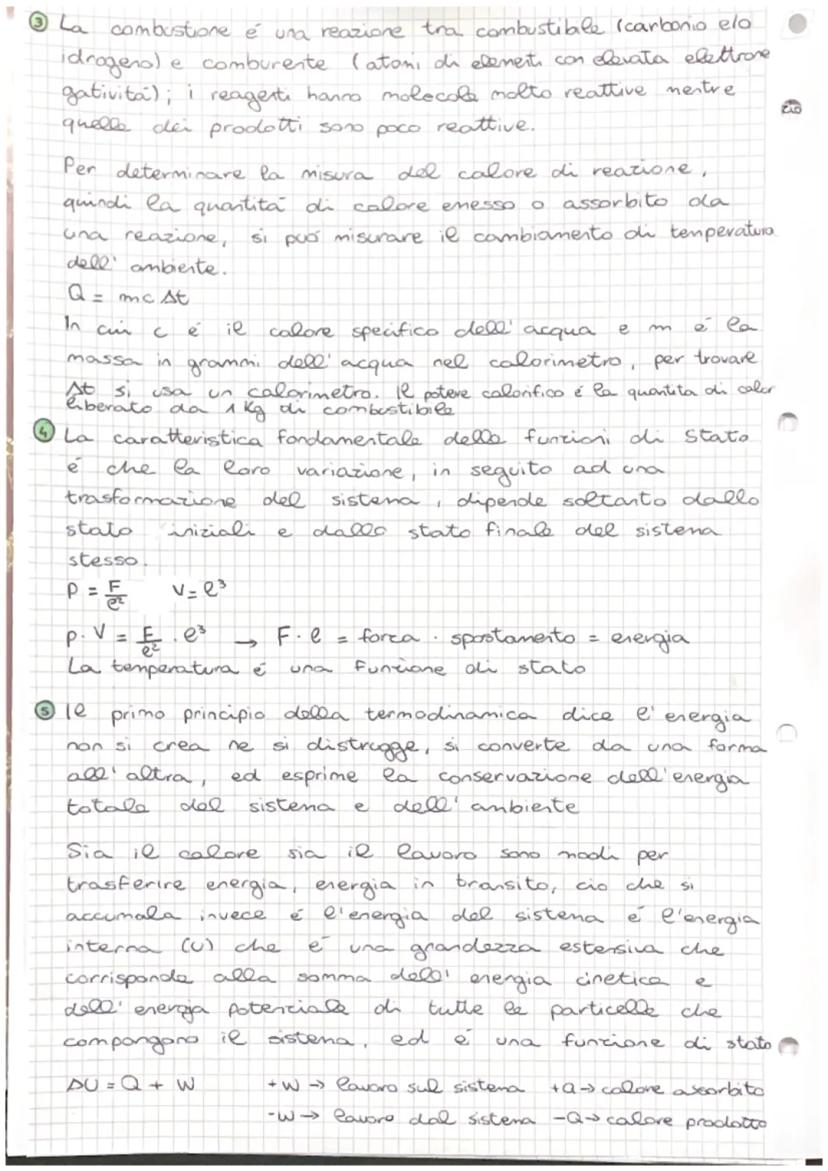 ③ La combustione é una reazione tra combustibile (carbonio e/o
idrogeno) e comburente (atomi di elementi con elevata elettrone
gatività); i reagenti hanno molecole molto reattive mentre
quelle dei prodotti sono poco reattive.
Per determinare la misura del calore di reazione,
quindi la quantità di calore emesso o assorbito da
una reazione, si puó misurare il cambiamento di temperatura
dell' ambiente.
Q = mc Δt
In cui c é il calore specifico dell' acqua e m é la
massa in grammi dell' acqua nel calorimetro, per trovare
Δt si usa un calorimetro. Il potere calorifico é la quantita di calor
liberato da 1 Kg di combustibile
④ La caratteristica fondamentale delle funzioni di Stato
é che la loro variazione, in seguito ad una
trasformazione del sistema, dipende soltanto dallo
stato iniziali e dallo stato finale del sistema
stesso.
P = F/l² V = l³
p. V = F/l² . l³ → F. l = forza . spostamento = energia
La temperatura é una funzione di stato
⑤ Il primo principio della termodinamica dice l' energia
non si crea ne si distrugge, si converte da una forma
all' altra, ed esprime la conservazione dell'energia
totale del sistema e dell' ambiente
Sia il calore sia il lavoro sono modi per
trasferire energia, energia in transito, cio che si
accumula invece é l'energia del sistema é l'energia
interna (U) che é una grandezza estensiva che
corrisponde alla somma dell' energia cinetica e
dell' energia potenziale di tutte le particelle che
compongono il sistema, ed é una funzione di stato
ΔU = Q + W +W → lavoro sul sistema +Q → calore assorbito
-W → lavoro dal sistema -Q → calore prodotto